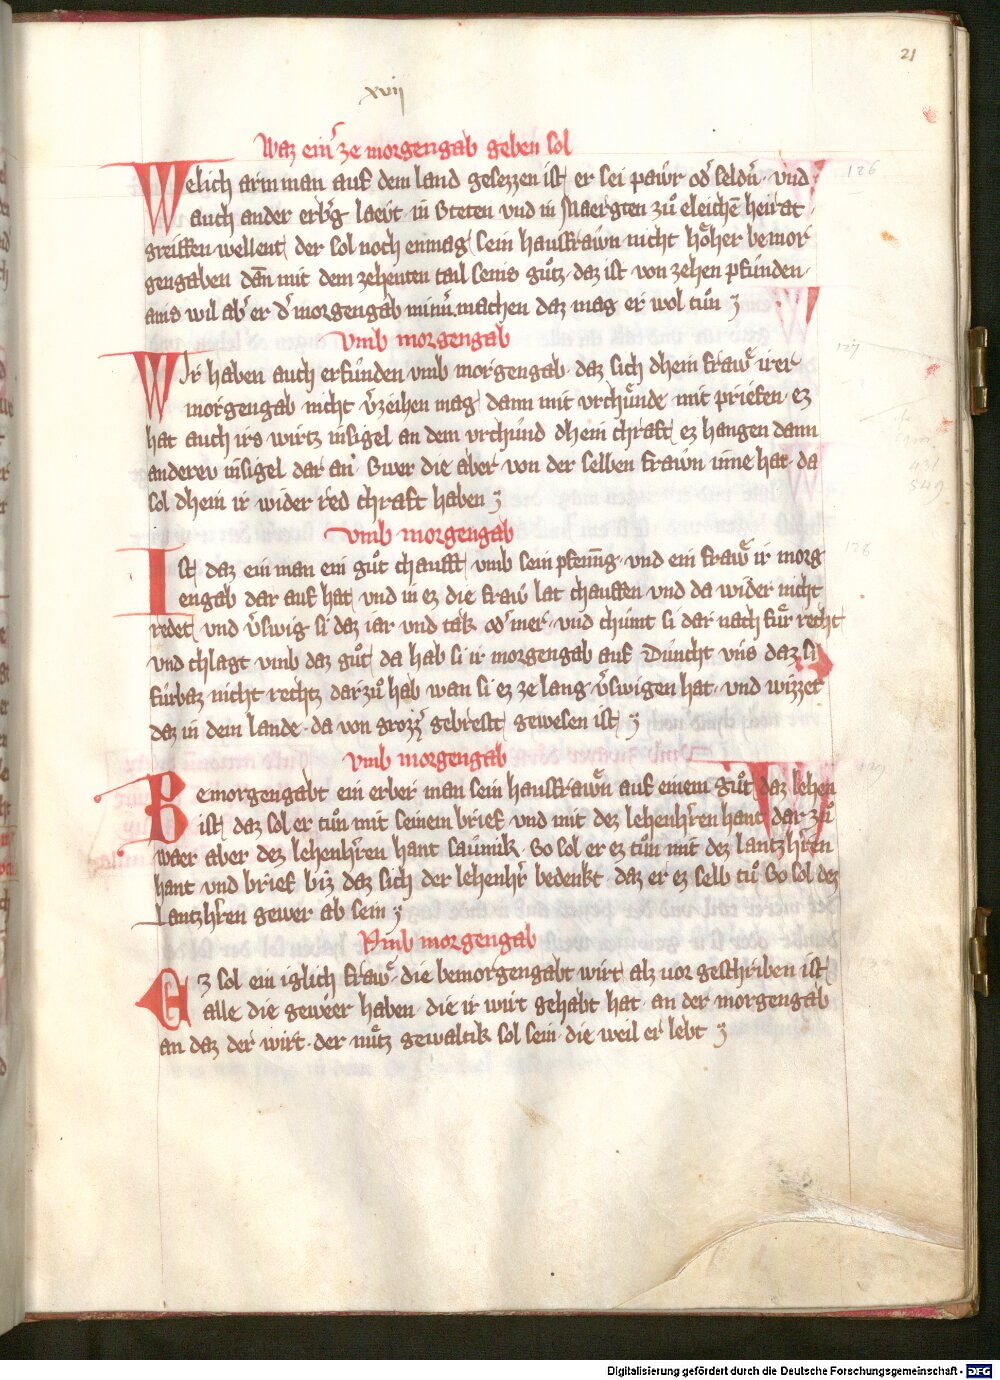 21
xvii
Waz ein᷑ ze morgengab geben sol
Welich arm man auf dem land gesezzen ist er sei pawr od᷑ seldn᷑ · vnd
auch ander erb᷑g laeut in Steten vnd in Maergten zuͦ eleichē heirat
greiffen wellent der sol noch enmag sein hausfrawn nicht hoͤher bemor
gengaben dan̄ mit dem zehenten tail seins guͦtz · daz ist · von zehen pfunden ·
ains wil ab᷑ er d᷑ morgengab minn᷑ machen daz mag er wol tuͦn
vmb morgengab
WIr haben auch erfunden vmb morgengab · daz sich dhein fraw irer
morgengab nicht v᷑zeihen mag dann mit vrchuͤnde mit priefen · ez
hat auch irs wirtz insigel an dem vrchund dhein chraft ez hangen dann
anderev insigel dar an · Swer die aber von der selben frawn inne hat · da
sol dhein ir wider red chraft haben
vmb morgengab
Ist daz ein man ein guͦt chaufft vmb sein pfenn̄ig · vnd ein fraw ir morg
engab dar auf hat vnd in ez die fraw lat chauffen vnd da wider nicht
redet vnd v᷑swig si daz iar vnd tak od᷑ mer · vnd chumt si dar nach fuͤr recht
vnd chlagt vmb daz guͦt da hab si ir morgengab auf Duncht vns daz si
furbaz nicht rechtz darzuͦ hab wan si ez ze lang v᷑swigen hat · vnd wizzet
daz in dem lande · da von grozz᷑ gebrest gewesen ist
vmb morgengab
Bemorgengabt ein erber man sein hausfrawn auf einem guͦt daz lehen
ist daz sol er tuͦn mit seinem brief vnd mit dez lehenh᷑ren hant dar zuͦ
waer aber dez lehenh᷑ren hant saumik · So sol er ez tuͦn mit dez lantzh᷑ren
hant vnd brief biz daz sich der lehenh᷑r bedenkt · daz er ez selb tuͦ So sol dez
Lantzh᷑ren gewer ab sein
Vmb morgengab
Ez sol ein iglich fraw · die bemorgengabt wirt alz vor geschriben ist
alle die geweer haben · die ir wirt gehabt hat · an der morgengab
an daz der wirt · der nuͤtz gewaltik sol sein · die weil er lebt
126
127
128
Digitalisierung gefördert durch die Deutsche Forschungsgemeinschaft - DFG